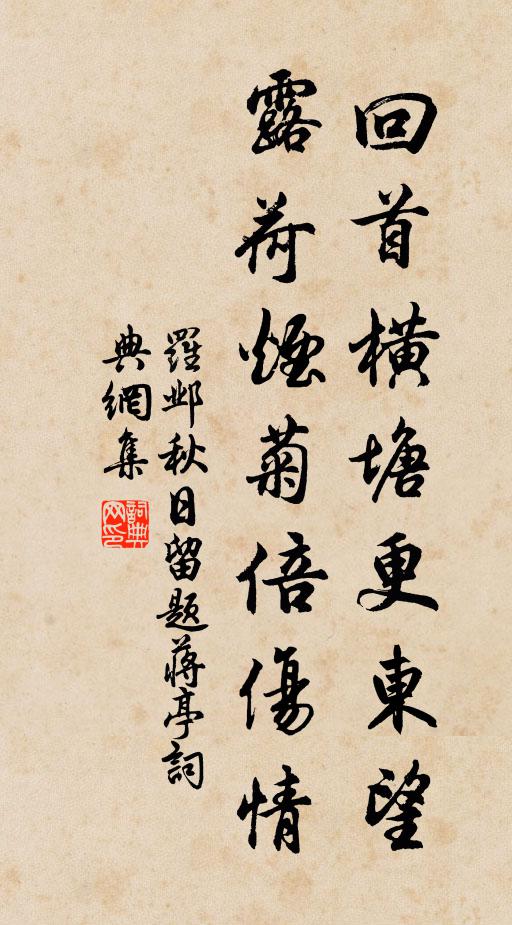 回首橫塘更東望
露荷煙菊倍傷情
羅邺秋日留題蔣亭詞
典網集
詞典
网印